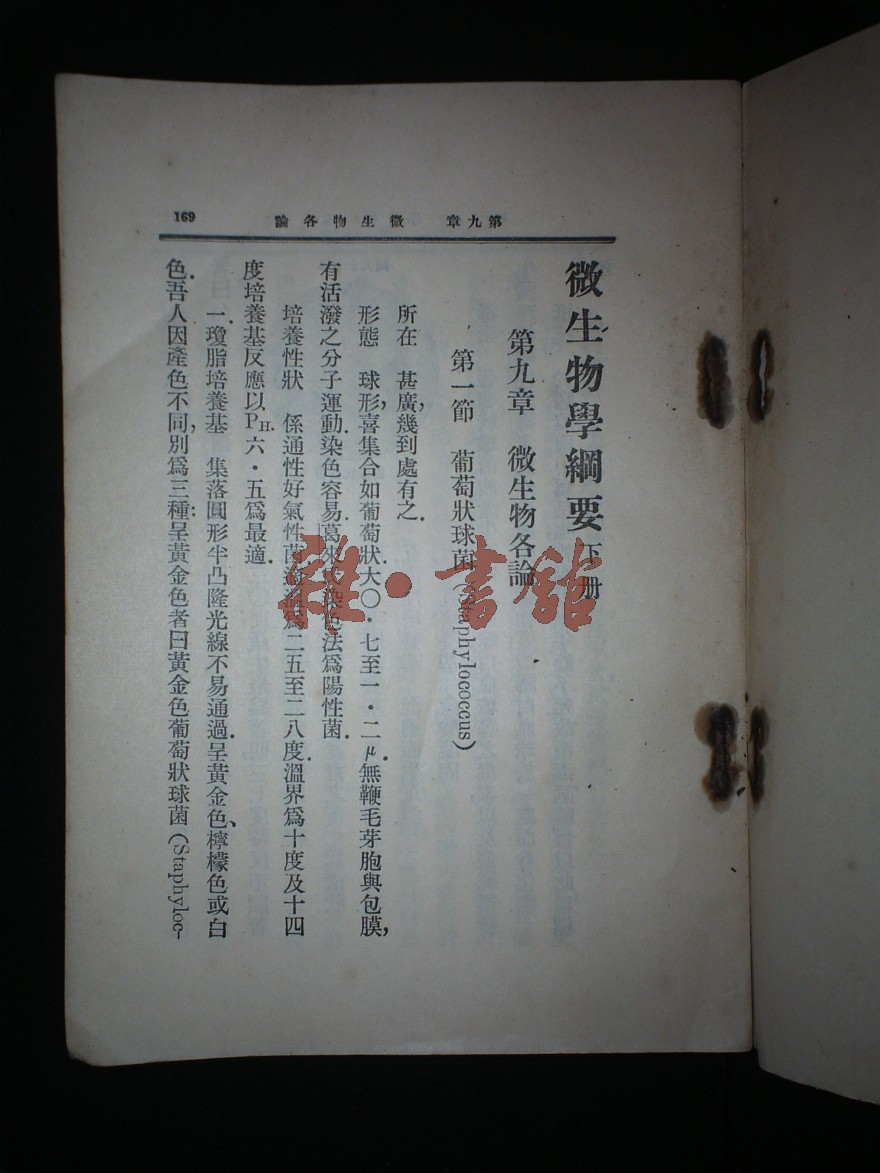 169
第九章 微生物各論
微生物學綱要 下册
第九章 微生物各論
第一節 葡萄狀球菌(Staphylococcus)
所在 甚廣,幾到處有之.
形態 球形,喜集合如葡萄狀.大〇・七至一・二μ.無鞭毛芽胞與包膜,
有活潑之分子運動.染色容易.葛染色法爲陽性菌.
培養性狀 係通性好氣性菌.溫爲二五至二八度.溫界爲十度及十四
度.培養基反應以PH.六・五爲最適.
一.瓊脂培養基 集落圓形半凸隆光線不易通過.呈黃金色、檸檬色或白
色.吾人因產色不同,別爲三種:呈黃金色者曰黃金色葡萄狀球菌(Staphyloc-
雜・書舘